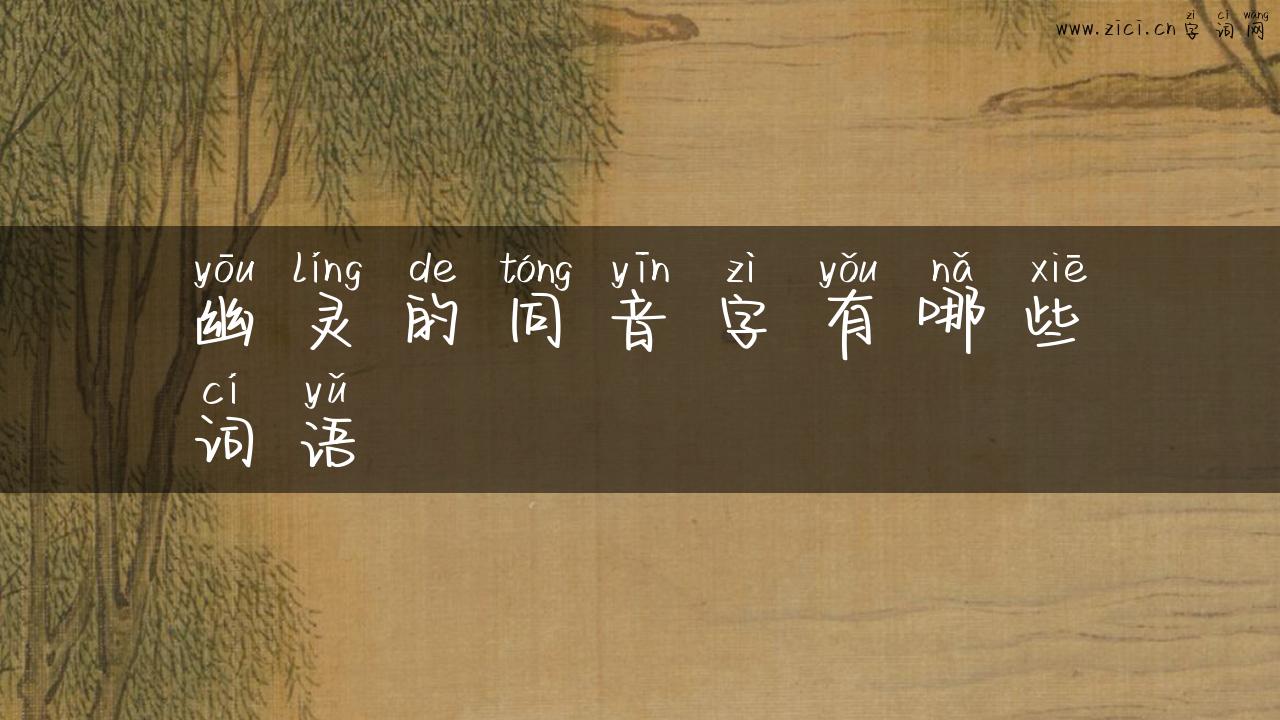 zì cí wǎng
www.zici.cn 字词网
yōu líng de tóng yīn zì yǒu nǎ xiē
幽灵的同音字有哪些
cí yǔ
词语